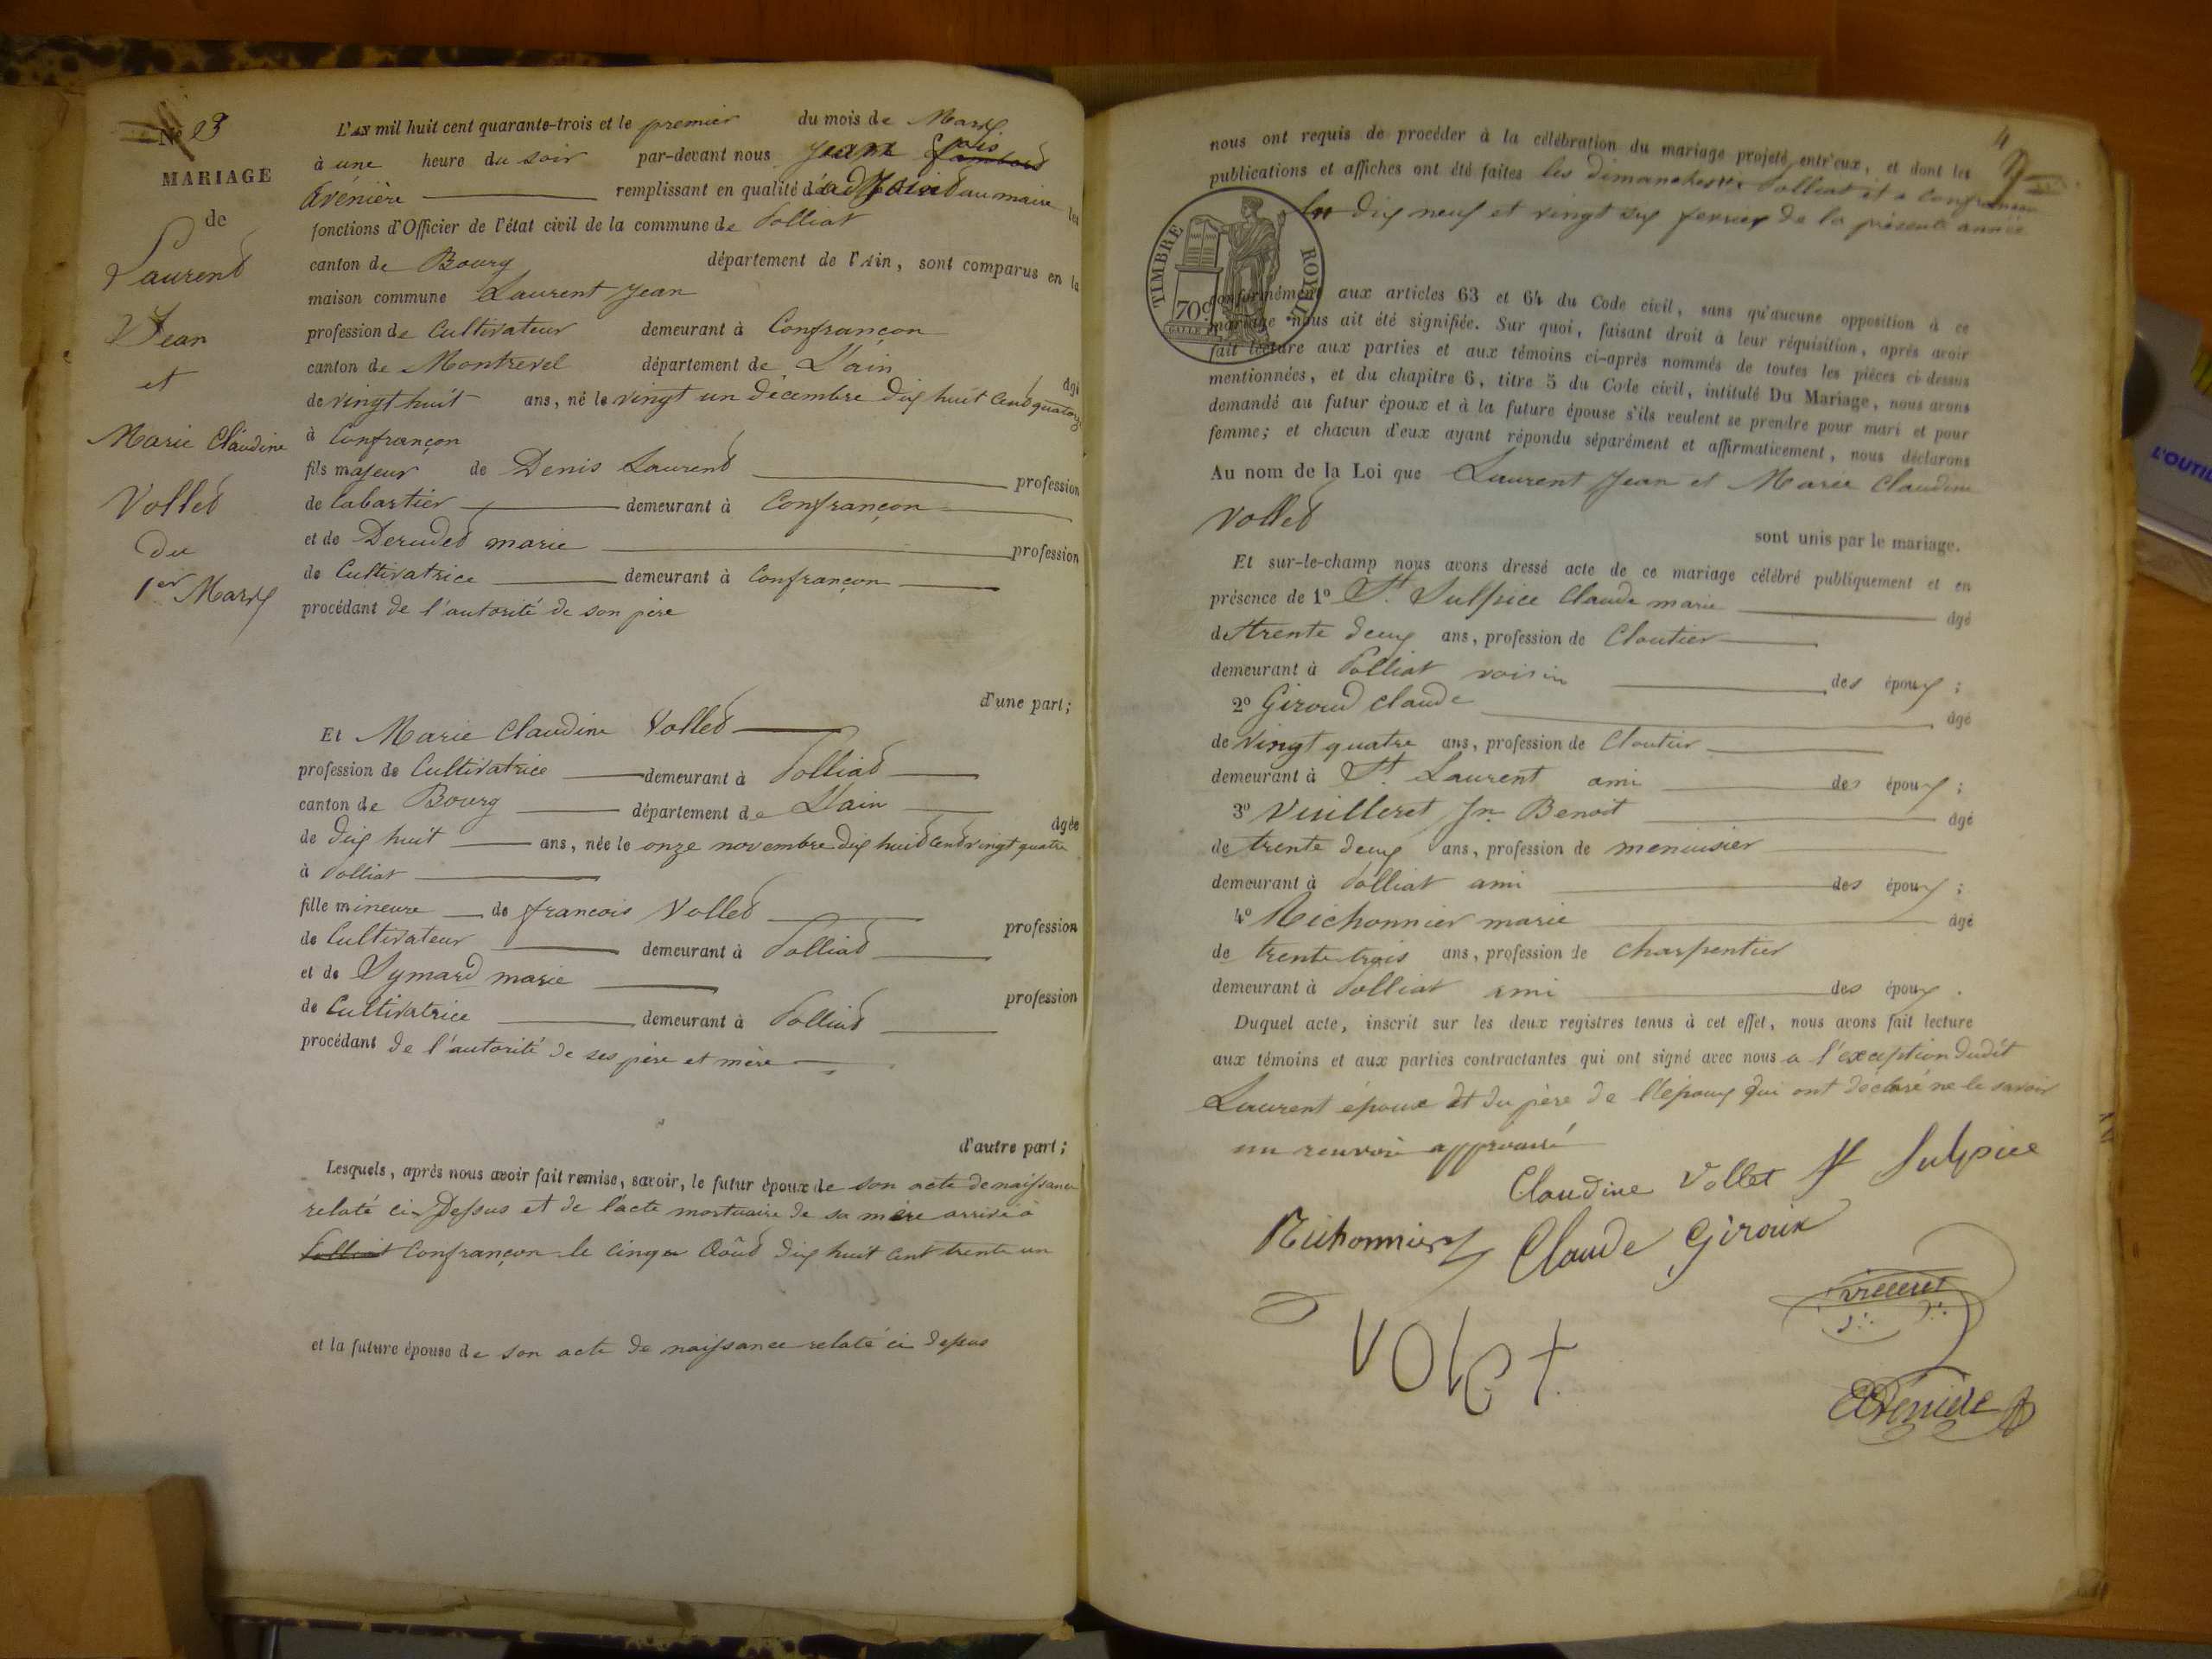 No 23
MARIAGE
de
Laurent
Jean
et
Marie Claudine
Vollet
du
1er Mars
L'an mil huit cent quarante-trois et le premier du mois de Mars
à une heure du soir par-devant nous Jean
Avénière remplissant en qualité d'adjoint au maire les
fonctions d'Officier de l'état civil de la commune de Polliat
canton de Bourg département de l'Ain, sont comparus en la
maison commune Laurent Jean
profession de Cultivateur demeurant à Confrançon
canton de Montrevel département de L'ain âgé
de vingt huit ans, né le vingt un décembre dix huit cent quatorze
à Confrançon
fils majeur de Denis Laurent profession
de labartier demeurant à Confrançon
et de Derudet marie profession
de Cultivatrice demeurant à Confrançon
procédant de l'autorité de son père
d'une part;
Et Marie Claudine Vollet
profession de Cultivatrice demeurant à Polliat
canton de Bourg département de L'ain âgée
de dix huit ans, née le onze novembre dix huit cent vingt quatre
à Polliat
fille mineure de francois Vollet profession
de Cultivateur demeurant à Polliat
et de Symard marie profession
de Cultivatrice demeurant à Polliat
procédant de l'autorité de ses père et mère
d'autre part;
Lesquels, après nous avoir fait remise, savoir, le futur époux de son acte de naissance
relaté ci-Dessus et de l'acte mortuaire de sa mère arrivé à
Polliat Confrançon le cinq Août dix huit cent trente un
et la future épouse de son acte de naissance relaté ci dessus
4
nous ont requis de procéder à la célébration du mariage projeté entr'eux, et dont les
publications et affiches ont été faites les dimanches a Polliat et a Confrançon
les dix neuf et vingt six fevrier de la présente année
TIMBRE ROYAL
70c
conformément aux articles 63 et 64 du Code civil, sans qu'aucune opposition à ce
mariage nous ait été signifiée. Sur quoi, faisant droit à leur réquisition, après avoir
fait lecture aux parties et aux témoins ci-après nommés de toutes les pièces ci-dessus
mentionnées, et du chapitre 6, titre 5 du Code civil, intitulé Du Mariage, nous avons
demandé au futur époux et à la future épouse s'ils veulent se prendre pour mari et pour
femme; et chacun d'eux ayant répondu séparément et affirmativement, nous déclarons
Au nom de la Loi que Laurent Jean et Marie Claudine
Vollet
sont unis par le mariage.
Et sur-le-champ nous avons dressé acte de ce mariage célébré publiquement et en
présence de 1o St. Sulpice Claude marie âgé
de trente deux ans, profession de Cloutier
demeurant à Polliat voisin des époux;
2o Giroud Claude âgé
de vingt quatre ans, profession de Cloutier
demeurant à St. Laurent ami des époux;
3o Vuilleret Jn. Benoit âgé
de trente deux ans, profession de menuisier
demeurant à Polliat ami des époux;
4o Richonnier marie âgé
de trente trois ans, profession de Charpentier
demeurant à Polliat ami des époux.
Duquel acte, inscrit sur les deux registres tenus à cet effet, nous avons fait lecture
aux témoins et aux parties contractantes qui ont signé avec nous a l'exception dudit
Laurent époux et du père de l'époux qui ont déclaré ne le savoir
un renvoi approuvé
Claudine Vollet St Sulpice
Richonnier Claude Giroux
Volet
Avéniere
L'OUTIL